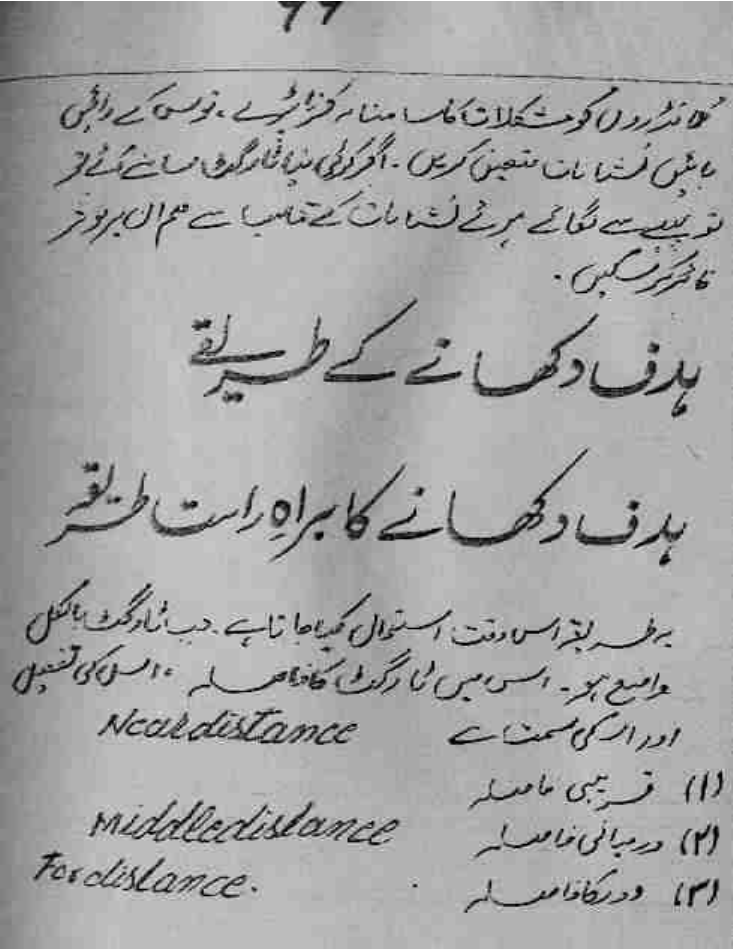 ۶۶
کمانڈروں کو مشکلات کا سامنا نہ کرنا پڑے، تو اس کے دائیں
بائیں نشانات متعین کریں۔ اگر کوئی نیا ٹارگٹ سامنے آئے تو
تو پہلے سے لگائے ہوئے نشانات کے سے ہم اس پر موثر
فائر کر سکیں۔
ہدف دکھانے کے طریقے
ہدف دکھانے کا براہِ راست طریقہ
یہ طریقہ اس وقت استعمال کیا جاتا ہے۔ جب ٹارگٹ بالکل
واضح ہو۔ اس میں ٹارگٹ کا فاصلہ، اس کی تفصیل
اور اس کی سمت ہے Near distance
(۱) قریبی فاصلہ
(۲) درمیانی فاصلہ Middle distance
(۳) دور کا فاصلہ For distance.